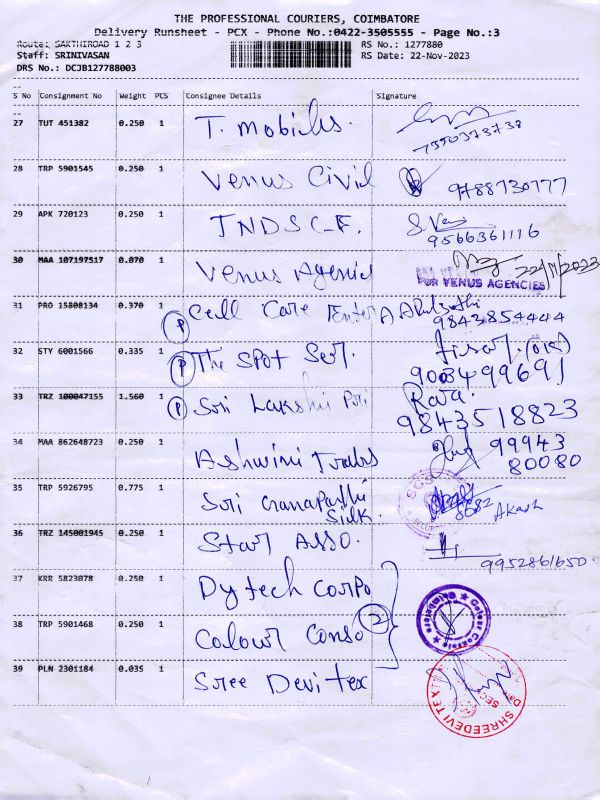 THE PROFESSIONAL COURIERS, COIMBATORE
Delivery Runsheet - PCX - Phone No.:0422-3505555 - Page No.:3
Route: SAKTHIROAD 1 2 3 RS No.: 1277880
Staff: SRINIVASAN RS Date: 22-Nov-2023
DRS No.: DCJB127788003
S No Consignment No Weight PCS Consignee Details Signature
27 TUT 451382 0.250 1 T. Mobiles.
7550373738
28 TRP 5901545 0.250 1 Venus Civil 9788730777
29 APK 720123 0.250 1 TNDSCF.
9566361116
30 MAA 107197517 0.070 1 Venus Agencies 22/11/2023
FOR VENUS AGENCIES
31 PRO 15808134 0.370 1 P Cell Care
9843854444
32 STY 6001566 0.335 1 P The Spot Ser.
9003499691
33 TRZ 100047155 1.560 1 P Sri Lakshmi Raja
9843518823
34 MAA 862648723 0.250 1 Ashwini Traders 99943
80080
35 TRP 5926795 0.775 1 Sri Ganapathi
Silk. 8682 Akash
36 TRZ 145001945 0.250 1 Star Asso.
9952861650.
37 KRR 5823078 0.250 1 Dytech Corpo
38 TRP 5901468 0.250 1 Colour Conso 2
39 PLN 2301184 0.035 1 Sree Devi tex
SHREEDEVI TEX